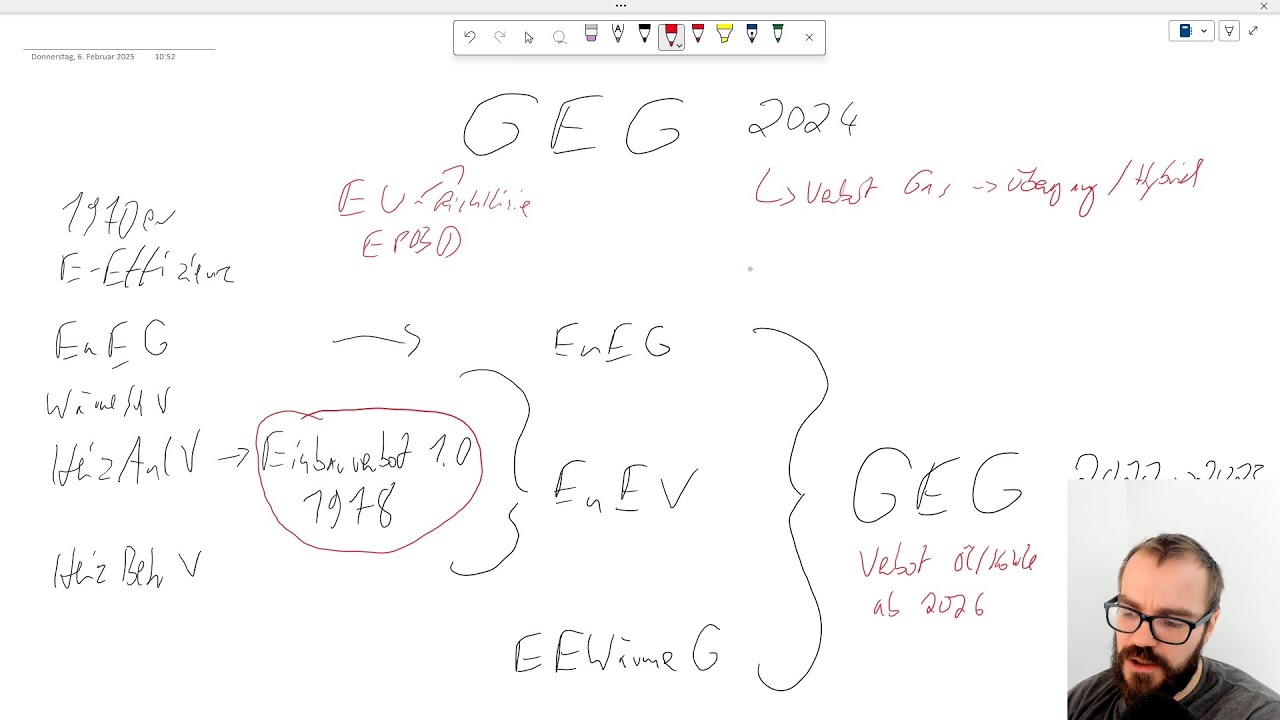 Donnerstag, 6. Februar 2025 10:52
GEG 2024
EU-Richtlinie
EPBD
↳ Verbot Gas → Übergang / Hybrid
1970er
E-Effizienz
EnEG → EnEG
WärmeSchV
HeizAnlV → Einbauverbot 1.0
1978
EnEV
GEG
HeizBetrV
Verbot Öl/Kohle
ab 2026
EEWärmeG